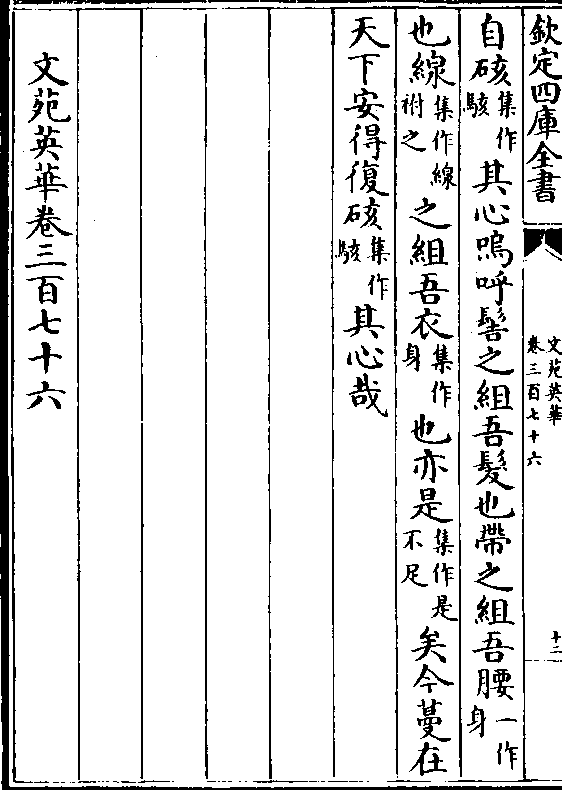 欽定四庫全書
文苑英華
卷三百七十六
十二
自硋集作駭其心嗚呼髻之組吾髮也帶之組吾腰一作身
也線集作線袝之之組吾衣集作身也亦是集作是不足矣今蔓在
天下安得復硋集作駭其心哉
文苑英華卷三百七十六